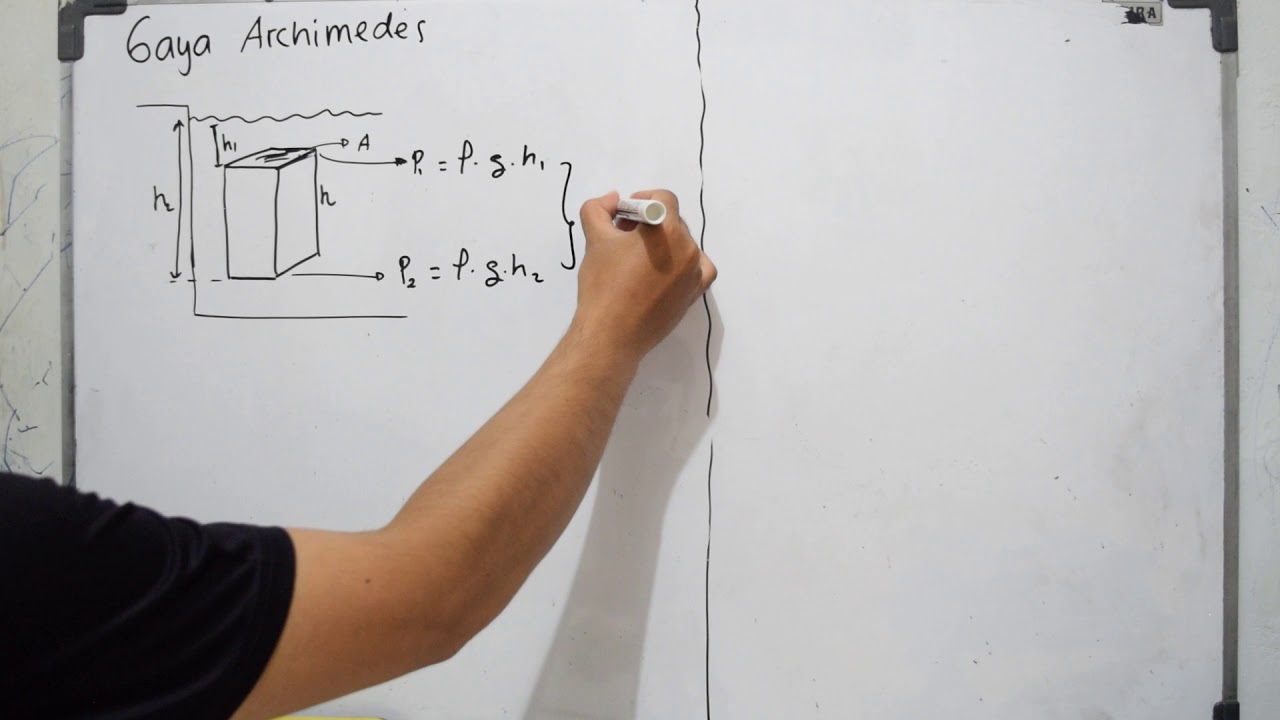 Gaya Archimedes
h₁
A
P₁ = ρ. g. h₁
h₂
h
P₂ = ρ. g. h₂